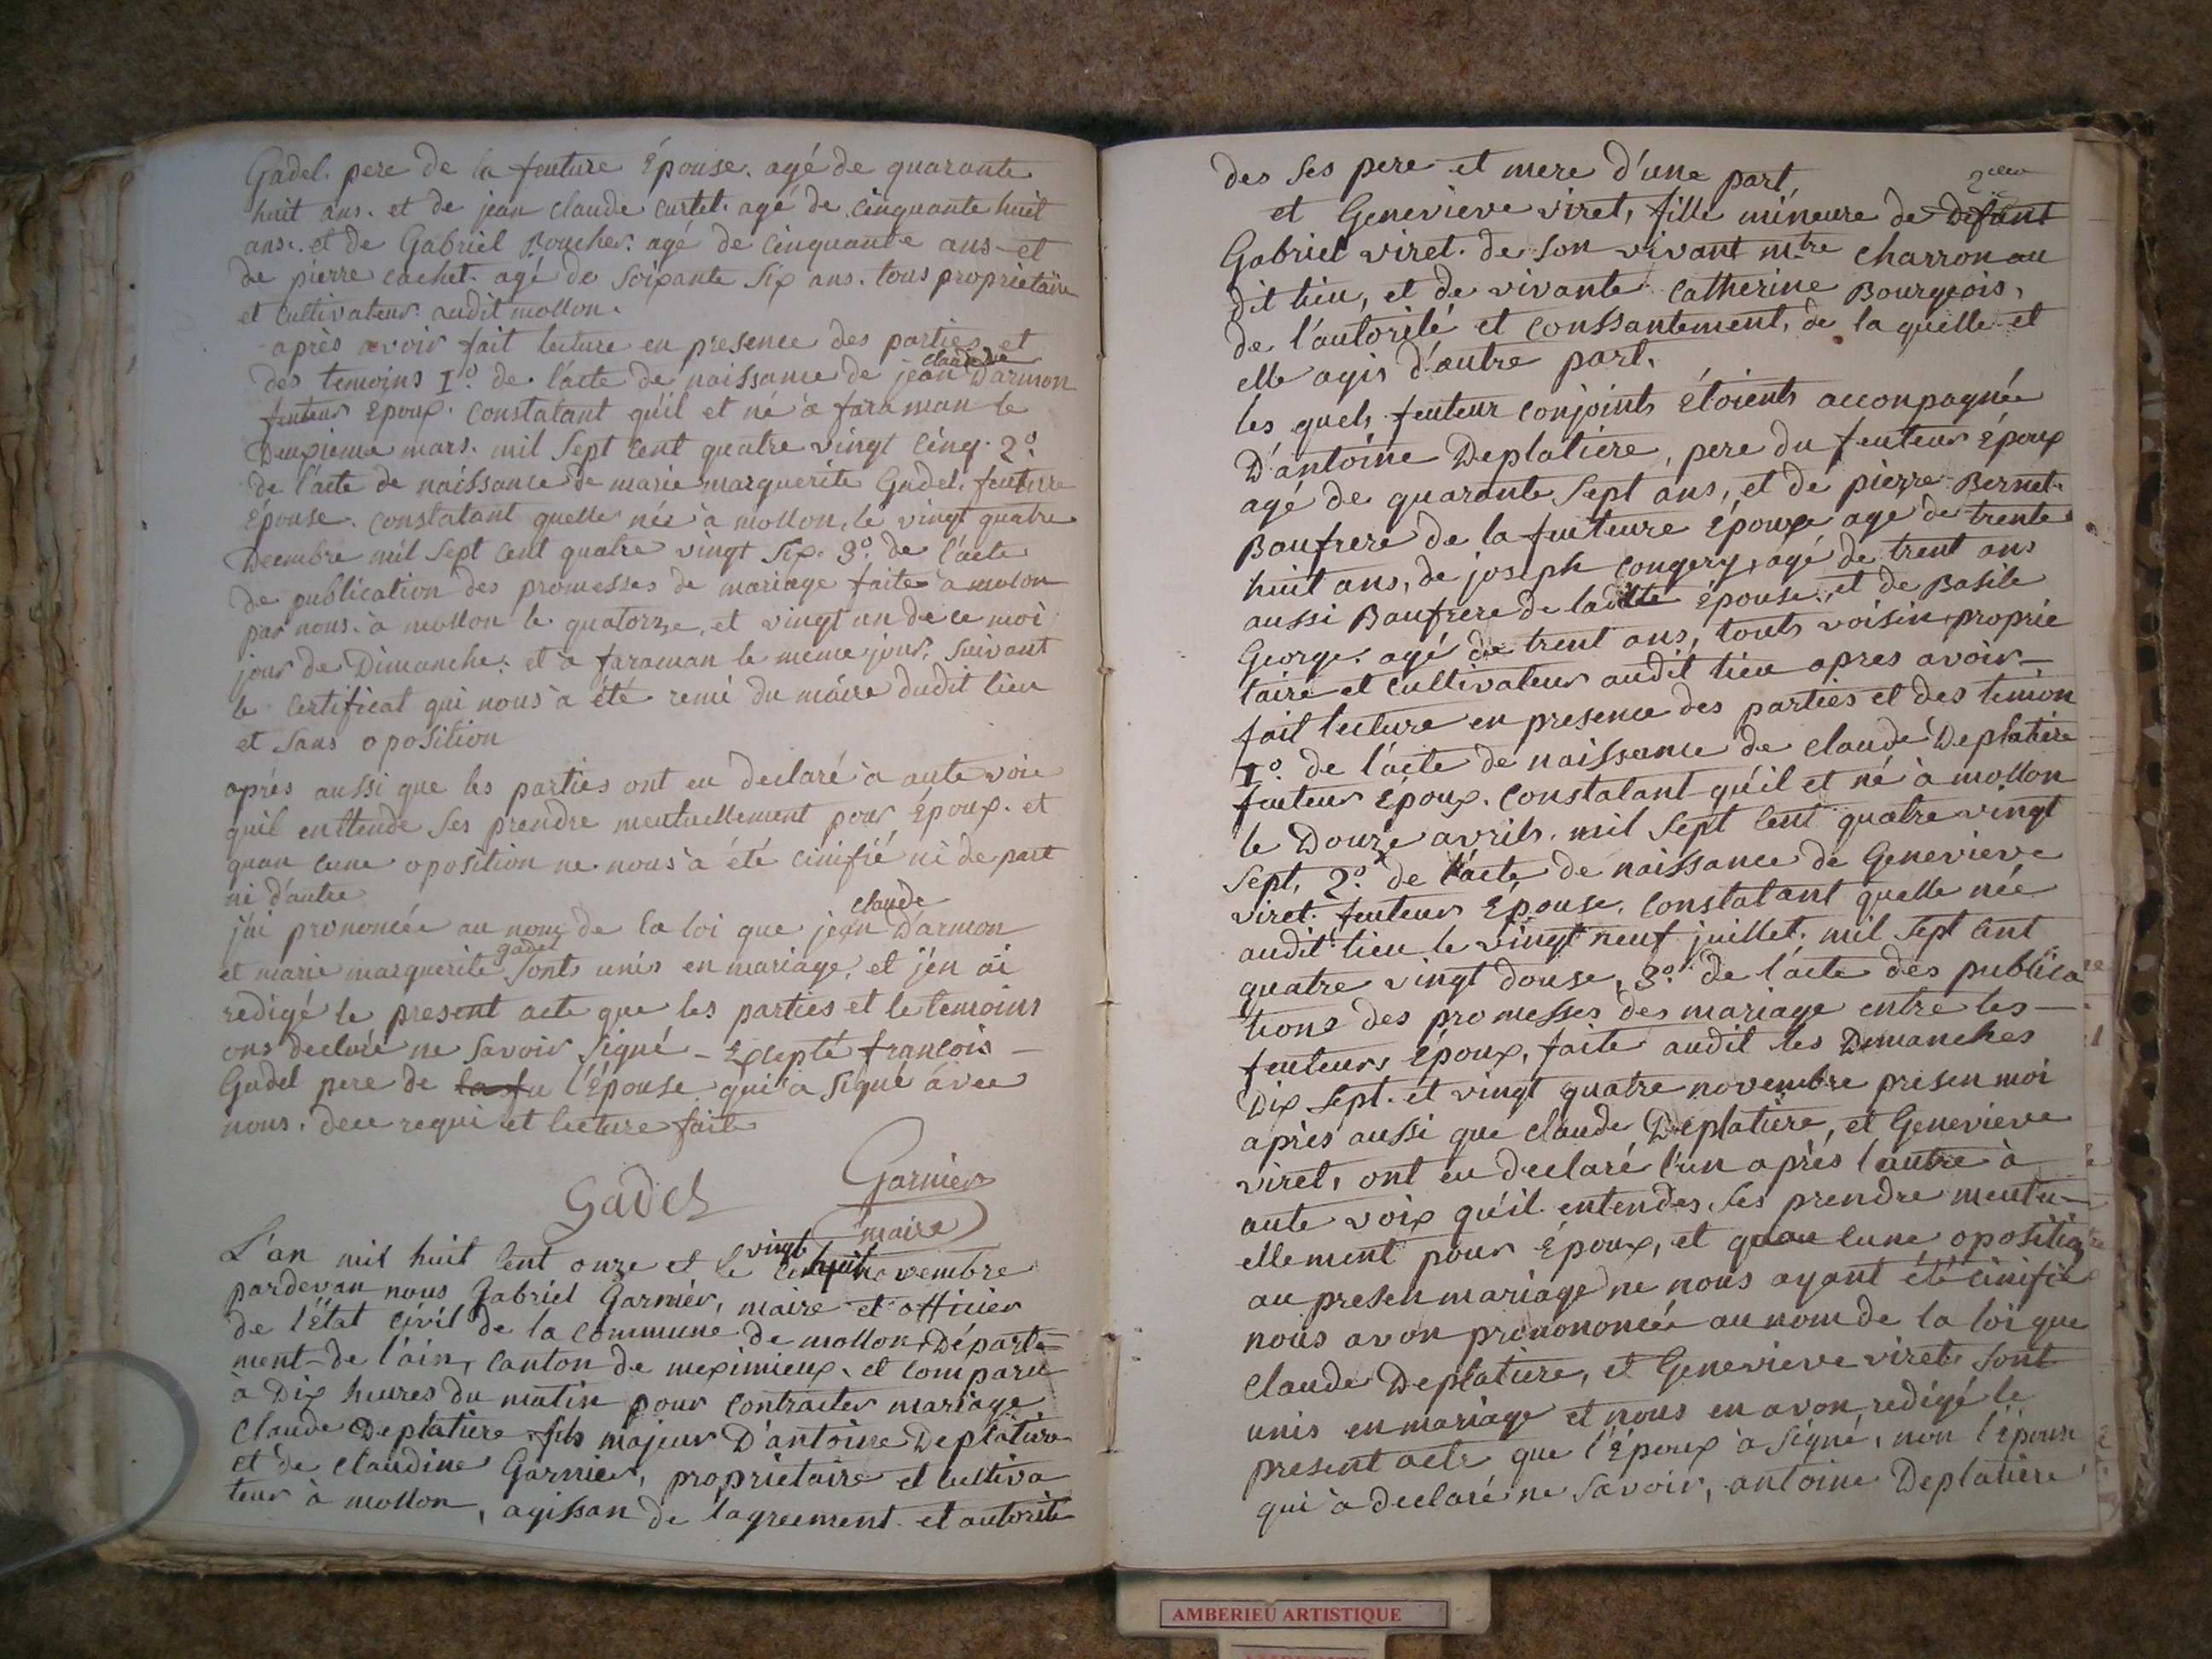 Gadel. pere de la feuture Épouse. agé de quarante
huit ans. et de jean claude curtet. agé de cinquante huit
ans. et de Gabriel Boucher. agé de cinquante ans et
de pierre cachet. agé de soixante six ans. tous proprietaire
et cultivateur audit mollon.
après avoir fait lecture en presence des parties et
des temoins 1º. de l'acte de naissance de jean claude D'armon
feuteur époux. constatant qu'il et né a faraman le
Deuxieme mars. mil sept cent quatre vingt cinq. 2º.
de l'acte de naissance de marie marguerite Gadel. feuture
Épouse. constatant quelle née a mollon, le vingt quatre
Decembre mil sept cent quatre vingt six. 3º. de l'acte
de publication des promesses de mariage faite a molon
par nous. a mollon le quatorze, et vingt un de ce moi
jour de Dimanche. et a faraman le meme jour, suivant
le certificat qui nous a été remi du maire dudit lieu
et sans oposition
après aussi que les parties ont eu declaré a aute voie
quil enttende ses prendre meutuellement pour Époux. et
quau cune oposition ne nous a été cinifié ni de part
ni d'autre
j'ai prononcée au nom de la loi que jean claude D'armon
et marie marguerite gadel sont unis en mariage, et j'en ai
redigé le present acte que les parties et le temoins
ons declaré ne savoir signé - Excepté francois
Gadel pere de l'Épouse qui a signé avec
nous. dece requi et lecture fait
Gadel
Garnier
maire
L'an mil huit cent onze et le vingt huit novembre
pardevan nous Gabriel Garnier, maire et officier
de l'État civil de la commune de mollon, Départe-
ment de l'ain, canton de meximieux. et comparu
à Dix heures du matin pour contracter mariage
Claude Deplatiere fils majeur D'antoine Deplatiere
et de claudine Garnier, proprietaire et cultiva
teur à mollon, agissan de l'agreement et autorité
des ses pere et mere d'une part,
et Genevieve viret, fille mineure de Defunt
Gabriel viret. de son vivant mtre charron au
dit lieu, et de vivante Catherine Bourgeois,
de l'autorité et conssantement, de la quelle et
elle agis d'autre part.
les quels feuteur conjoints étoients acconpagnée
D'antoine Deplatiere, pere du feuteur époux
agé de quarante sept ans, et de pierre Bernet.
Baufrere de la feuteure Épouse age de trente
huit ans, de joseph Congery, agé de trent ans
aussi Baufrere de ladite épouse, et de Basile
George. agé de trent ans, touts voisin, proprie
taire et cultivateur audit lieu apres avoir
fait lecture en presence des parties et des temion
1º. de l'acte de naissance de claude Deplatiere
feuteur Époux. constatant qu'il et né à mollon
le Douze avrils. mil sept cent quatre vingt
sept, 2º. de l'acte de naissance de Genevieve
viret. feuteur Épouse. constatant quelle née
audit lieu le vingt neuf juillet. mil sept cent
quatre vingt douse, 3º. de l'acte des publica
tions des promesses des mariage entre les
feuteurs Époux, faite audit les Dimanches
Dix sept. et vingt quatre novembre presen moi
après aussi que claude Deplatiere, et Genevieve
viret, ont eu declaré l'un après l'autre à
aute voix qu'il entendes ses prendre meutu-
ellement pour Époux, et quau cune opositio
au presen mariage ne nous ayant été cinifie
nous avon prononcée au nom de la loi que
claude Deplatiere, et Genevieve viret sont
unis en mariage et nous en avon redigé le
present acte que l'Époux a signé, non l'épouse
qui a declaré ne savoir, antoine Deplatiere
AMBERIEU ARTISTIQUE